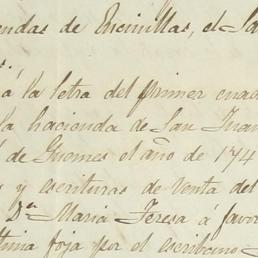 endas de Encinillas, el Sa
s.
á la letra del primer cuad
la hacienda de San Juan
de Guemes el año de 174
s y escrituras de venta del
Dª Maria Teresa á favor
tima foja por el escribano